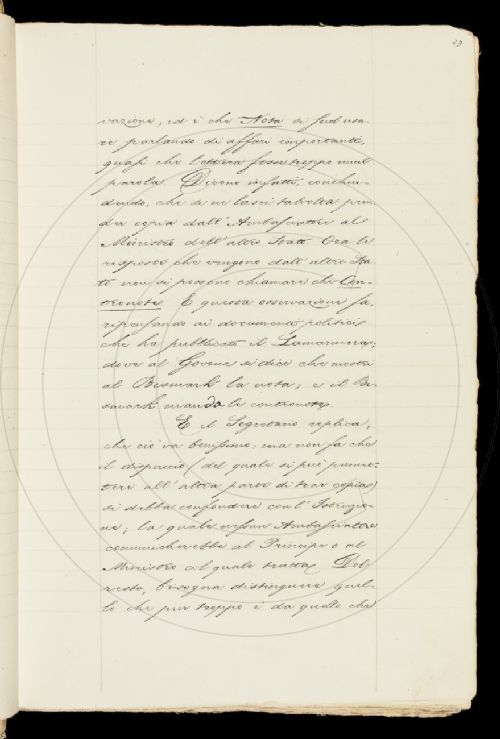 29
vazione, ed è che Nota si suol usa-
re parlando di affari importanti,
quasi che lettera fosse troppo umil
parola. Dicono infatti, conchiu-
dendo, che se ne lasci talvolta pren-
der copia dall' Ambasciatore al
Ministro dell' altro Stato. Ora le
risposte che vengono dall' altro Sta-
to non si possono chiamare che Con-
tronote. E questa osservazione fa,
ripensando ai documenti politici
che ha pubblicato il Lamarmora;
dove al Govone si dice che mostri
al Bismark la nota, e il Bi-
smark manda le contronote.
E il Segretario replica,
che ciò va benissimo; ma non sa che
il dispaccio (del quale si può promet-
tere all' altra parte di trar copia)
si debba confondere con l' Istruzio-
ne; la quale nessun Ambasciatore
comunicherebbe al Principe o al
Ministro col quale tratta. Del
resto, bisogna distinguere quel-
lo che pur troppo è da quello che